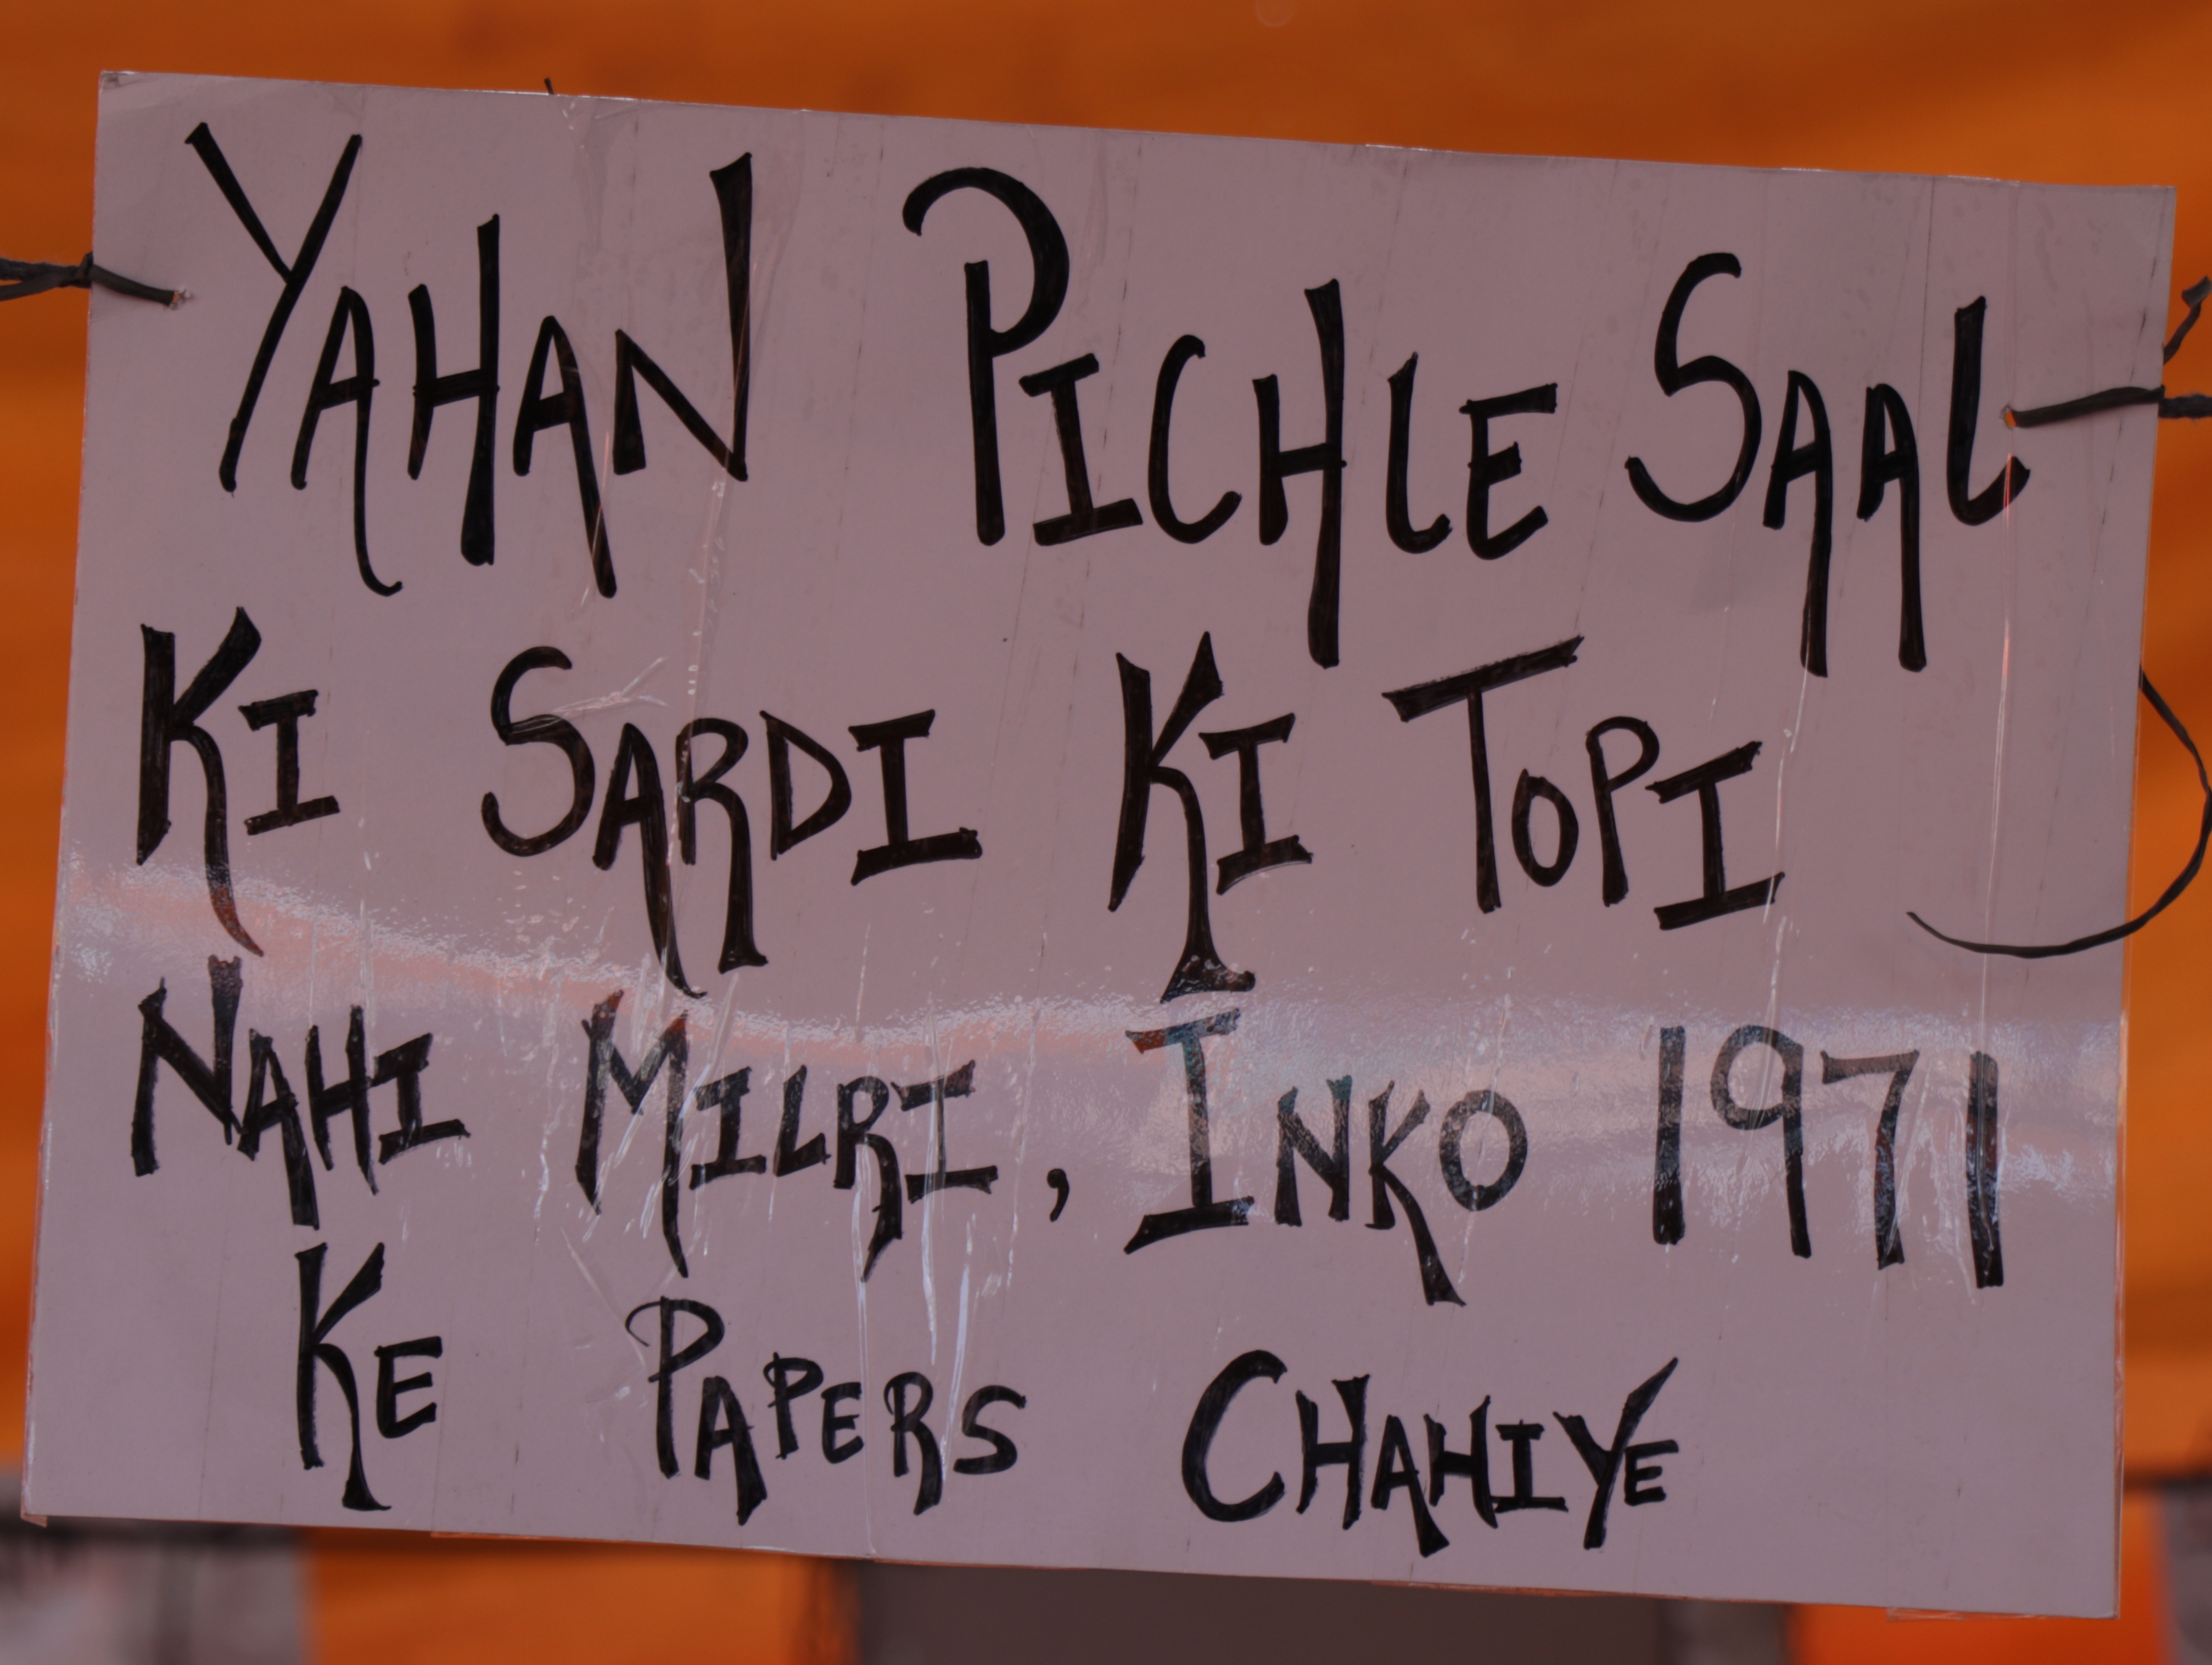 YAHAN PICHLE SAAL
KI SARDI KI TOPI
NAHI MILRI, INKO 1971
KE PAPERS CHAHIYE